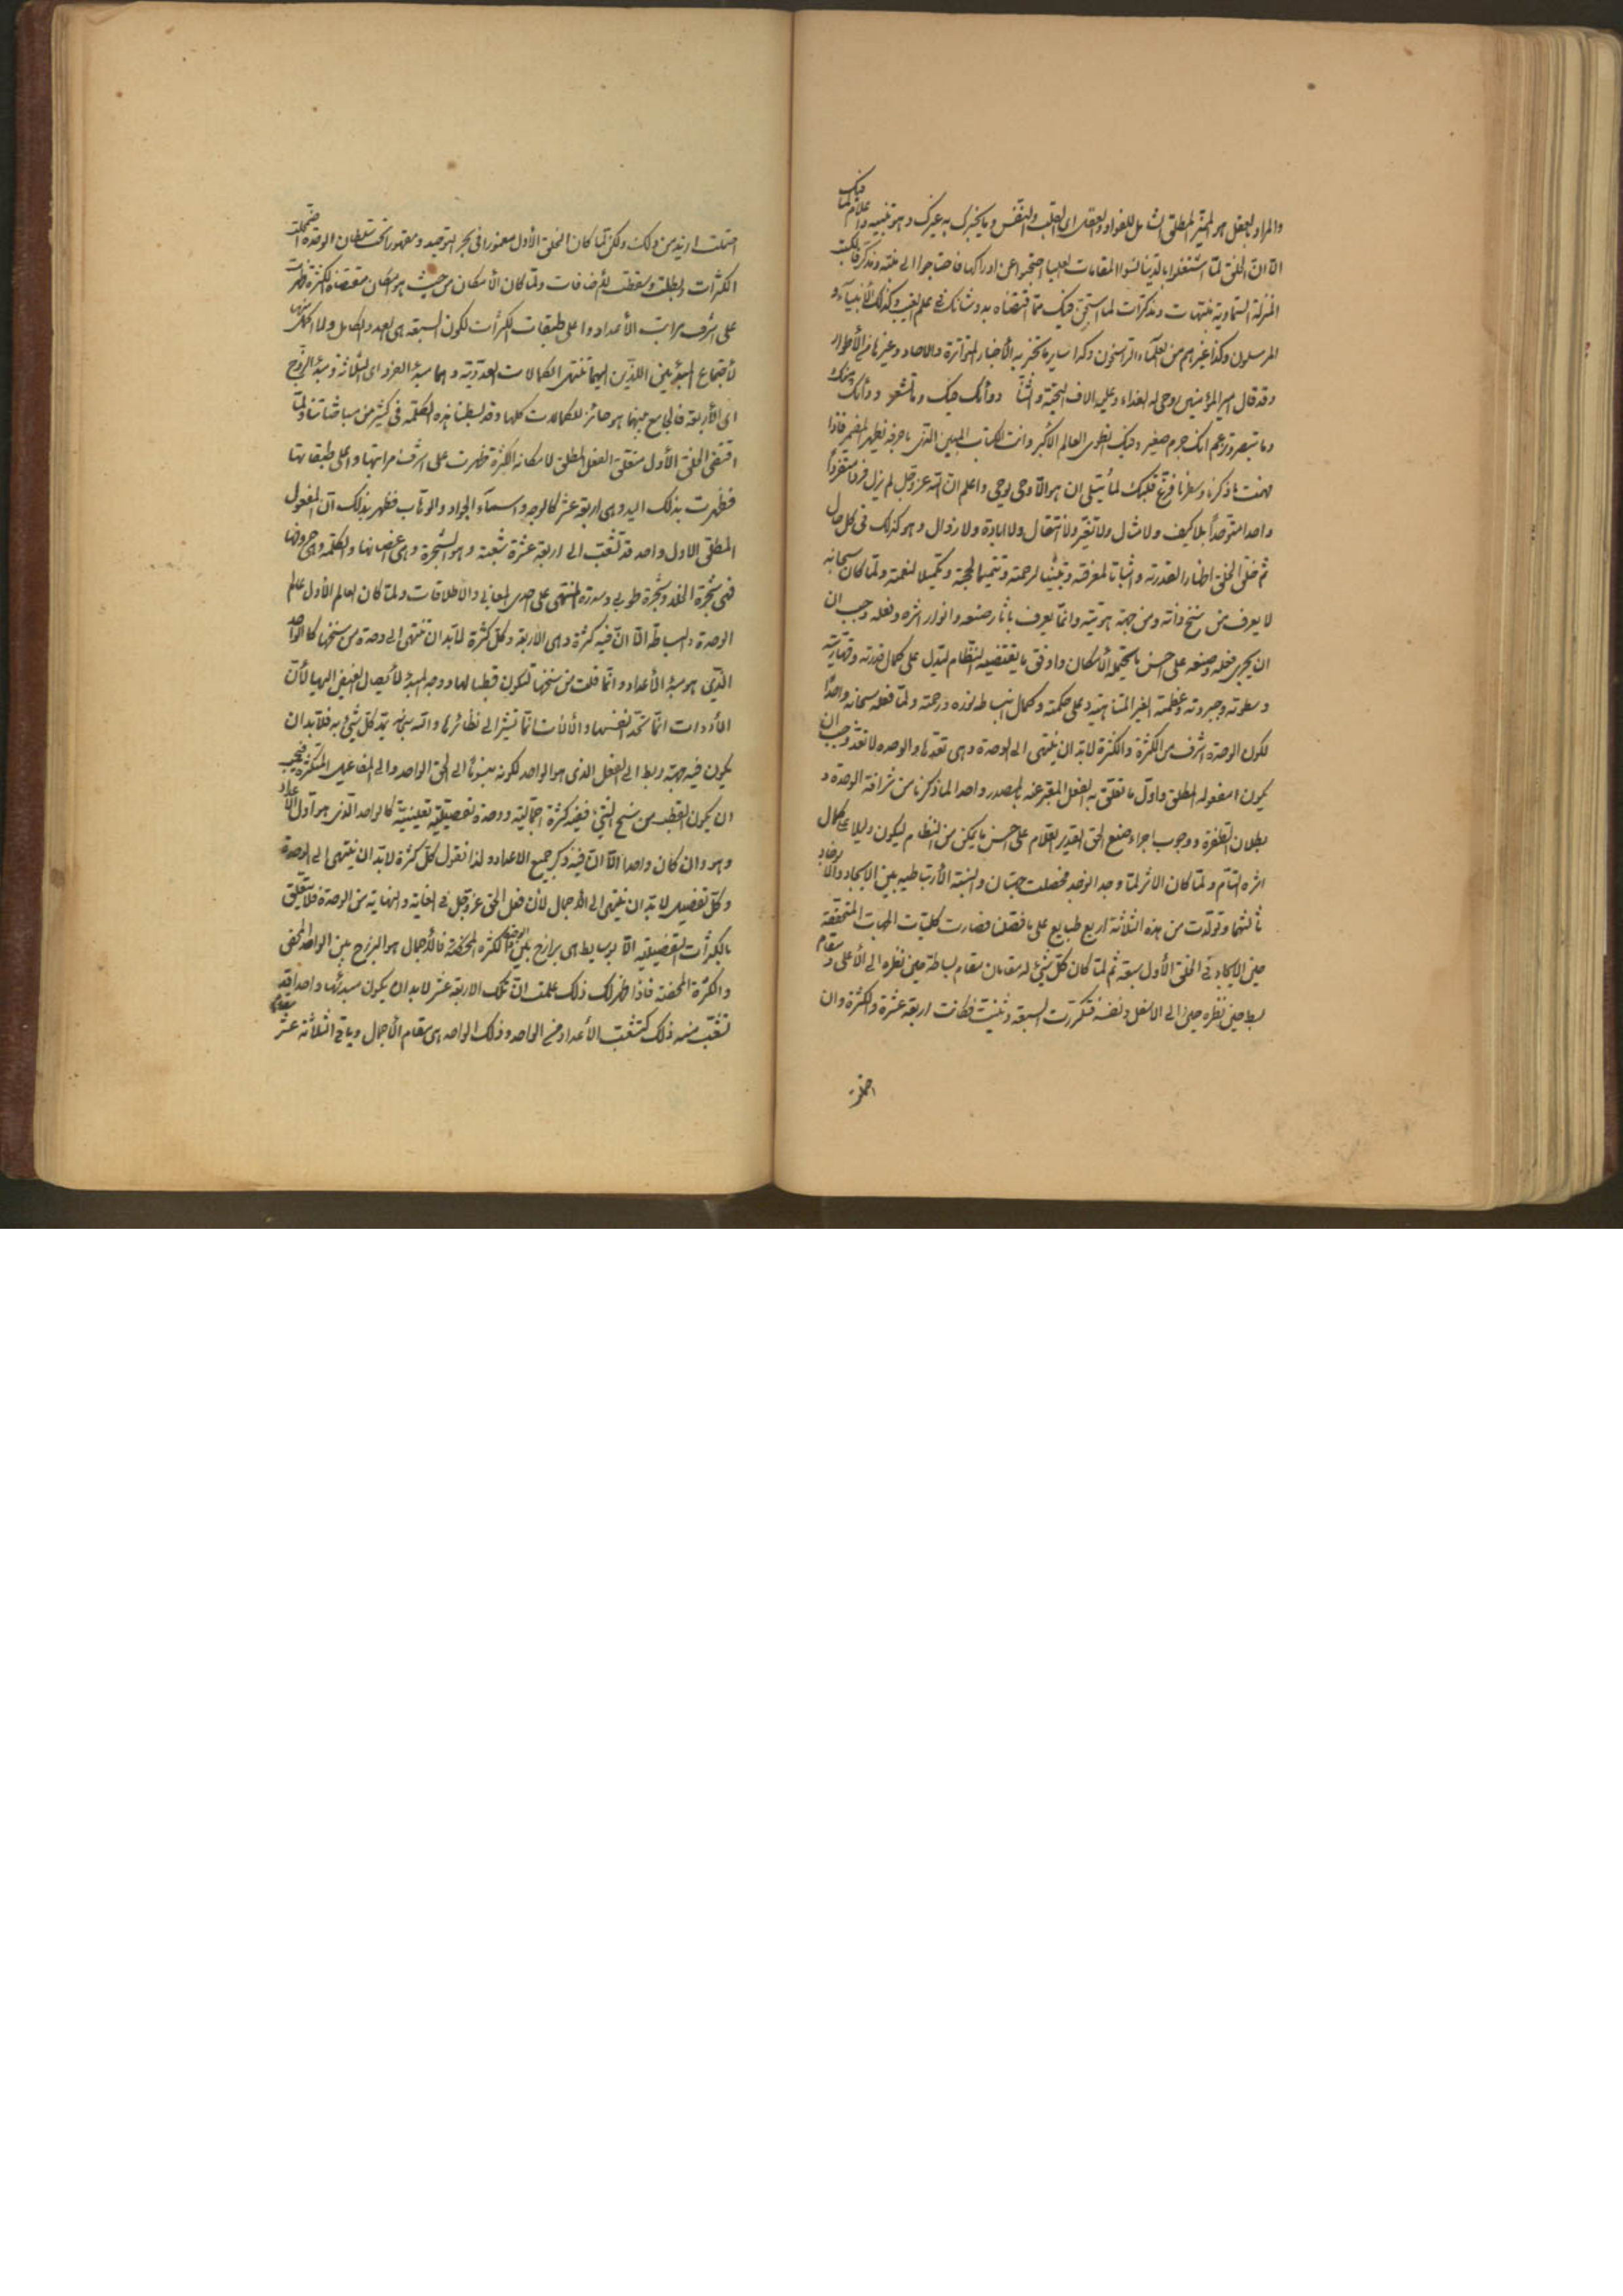 والمراد بالعقل هو المميز المطلق الشامل للفؤاد والعقل اى القلب والنفس وما يخبرك به غيرك وهو تنبيه واعلام لما فيك
الا ان الخلق لما اشتغلوا بالدنيا نسوا المقامات العليا احتجبوا عن ادراكها فاحتاجوا الى منبه ومذكر فالكتب
المنزلة السماوية منبهات ومذكرات لما استجن فيك مما اقتضاه بدو شانك فى علم الغيب وكذلك الأنبياء و
المرسلون وكذا غيرهم من العلماء الراسخون وكذا ساير ما تخبر به الأخبار المتواترة والاحاد وغيرها من الأطوار
وقد قال امير المؤمنين روحى له الفداء وعليه الاف التحية والثنا دوائك فيك وما تشعر ودائك منك
وما تبصر وتزعم انك جرم صغير وفيك انطوى العالم الأكبر وانت الكتاب المبين الذى باحرفه يظهر المضمر فاذا
فهمت ما ذكرنا وسطرنا فرغ قلبك لما يتلى ان هو الا وحى يوحى واعلم ان الله عز وجل لم يزل فردا متفردا
واحدا متوحدا بلا كيف ولا مثال ولا تغير ولا انتقال ولا ابادة ولا زوال وهو كذلك فى كل حال
ثم خلق الخلق اظهارا لقدرته واثباتا لمعرفته وتبيينا لرحمته وتتميما لحجته وتكميلا لنعمته ولما كان سبحانه
لا يعرف من سنخ ذاته ومن جهة هويته وانما يعرف باثار صنعه وانوار اثره وفعله وجب ان
ان يجرى فعله وصنعه على احسن ما يحتمله الأمكان واوفق ما يقتضيه النظام ليدل على كمال قدرته وقهاريته
وسطوته وجبروته وعظمته الغير المتناهية وعلى حكمته وكمال انبساط نوره ورحمته ولما فعله سبحانه واحدا
لكون الوحدة اشرف من الكثرة والكثرة لابد ان ينتهى الى الوحدة وهى تعدها والوحدة لا تعد وجب ان
يكون مفعوله المطلق واول ما تعلق به الفعل المعبر عنه بالمصدر واحدا لما ذكرنا من شرافة الوحدة و
بطلان الطفرة ووجوب اجراء صنع الحق القدير العلام على احسن ما يمكن من النظام ليكون دليلا على كمال
اثره التام ولما كان الاثر لما وجد انوجد فحصلت جهتان والنسبة الأرتباطية بين الايجاد والانوجاد
ثالثتهما وتولدت من هذه الثلاثة اربع طبايع على ما فصلنا فصارت كليات الجهات المتحققة
حين الايجاد فى الخلق الأول سبعة ثم لما كان كل شئ له مقامان مقام بساطة حين نظره الى الأعلى ومقام
بسط حين نظره الى الاسفل ونفسه فتكررت السبعة وثنيت فكانت اربعة عشرة والكثرة وان
احتملت
احتملت ازيد من ذلك ولكن لما كان الخلق الأول مغمورا فى بحر التوحيد ومقهورا تحت سلطان الوحدة اضمحلت
الكثرات وبطلت وسقطت الأضافات ولما كان الأمكان من حيث هو امكان مقتضاه الكثرة ظهرت
على اشرف مراتب الأعداد واعلى طبقات الكثرات لكون السبعة هى العدد الكامل ولا اكمل منها
لأجتماع المبدئين اللذين اليهما تنتهى الكمالات العددية وهما مبدء الفرد اى الثلاثة ومبدء الزوج
اى الأربعة فالجامع بينهما هو حائز للكمالات كلها وقد بسطنا هذه الكلمة فى كثير من مباحثاتنا ولما
اقتضى الخلق الأول متعلق الفعل المطلق لامكانه الكثرة ظهرت على اشرف مراتبها واعلى طبقاتها
فظهرت بذلك اليد وهى اربعة عشر كالوجه واسماء الجواد والوهاب فظهر بذلك ان المفعول
المطلق الاول واحد قد تشعب الى اربعة عشرة شعبة وهو الشجرة وهى اغصانها والكلمة وهى حروفها
فهى شجرة الخلد وشجرة طوبى وسدرة المنتهى على احدى المعانى والأطلاقات ولما كان العالم الأول عالم
الوحدة والبساطة الا ان فيه كثرة وهى الاربعة وكل كثرة لابد ان تنتهى الى وحدة من سنخها كالواحد
الذى هو مبدء الأعداد وانما قلت من سنخها لتكون قطبا لها ووجه المبدء لأيصال الفيض اليها لأن
الأدوات انما تحد انفسها والالات انما تشير الى نظائرها والله سبحانه يمد كل شئ به فلابد ان
يكون فيه جهة ربط الى الفعل الذى هو الواحد لكونه منسوبا الى الحق الواحد والى المفاعيل المتكثرة فيجب
ان يكون القطب من سنخ الشئ ففيه كثرة اجمالية ووحدة تفصيلية تعينية كالواحد الذى هو اول الأعداد
وهو وان كان واحدا الا ان فيه ذكر جميع الاعداد ولذا نقول كل كثرة لابد ان ينتهى الى الوحدة
وكل تفصيل لابد ان ينتهى الى الأجمال لأن فعل الحق عز وجل فى الغاية والنهاية من الوحدة فلا يتعلق
بالكثرات التفصيلية الا بوسايط هى برازخ بين الوحدة والكثرة المحضة فالأجمال هو البرزخ بين الواحد المحض
والكثرة المحضة فاذا ظهر لك ذلك علمت ان تلك الاربعة عشر لابد ان يكون مبدئها واحدا قد
تشعب منه ذلك كتشعب الأعداد من الواحد وذلك الواحد هى مقام الأجمال وباقى الثلاثة عشر مقام